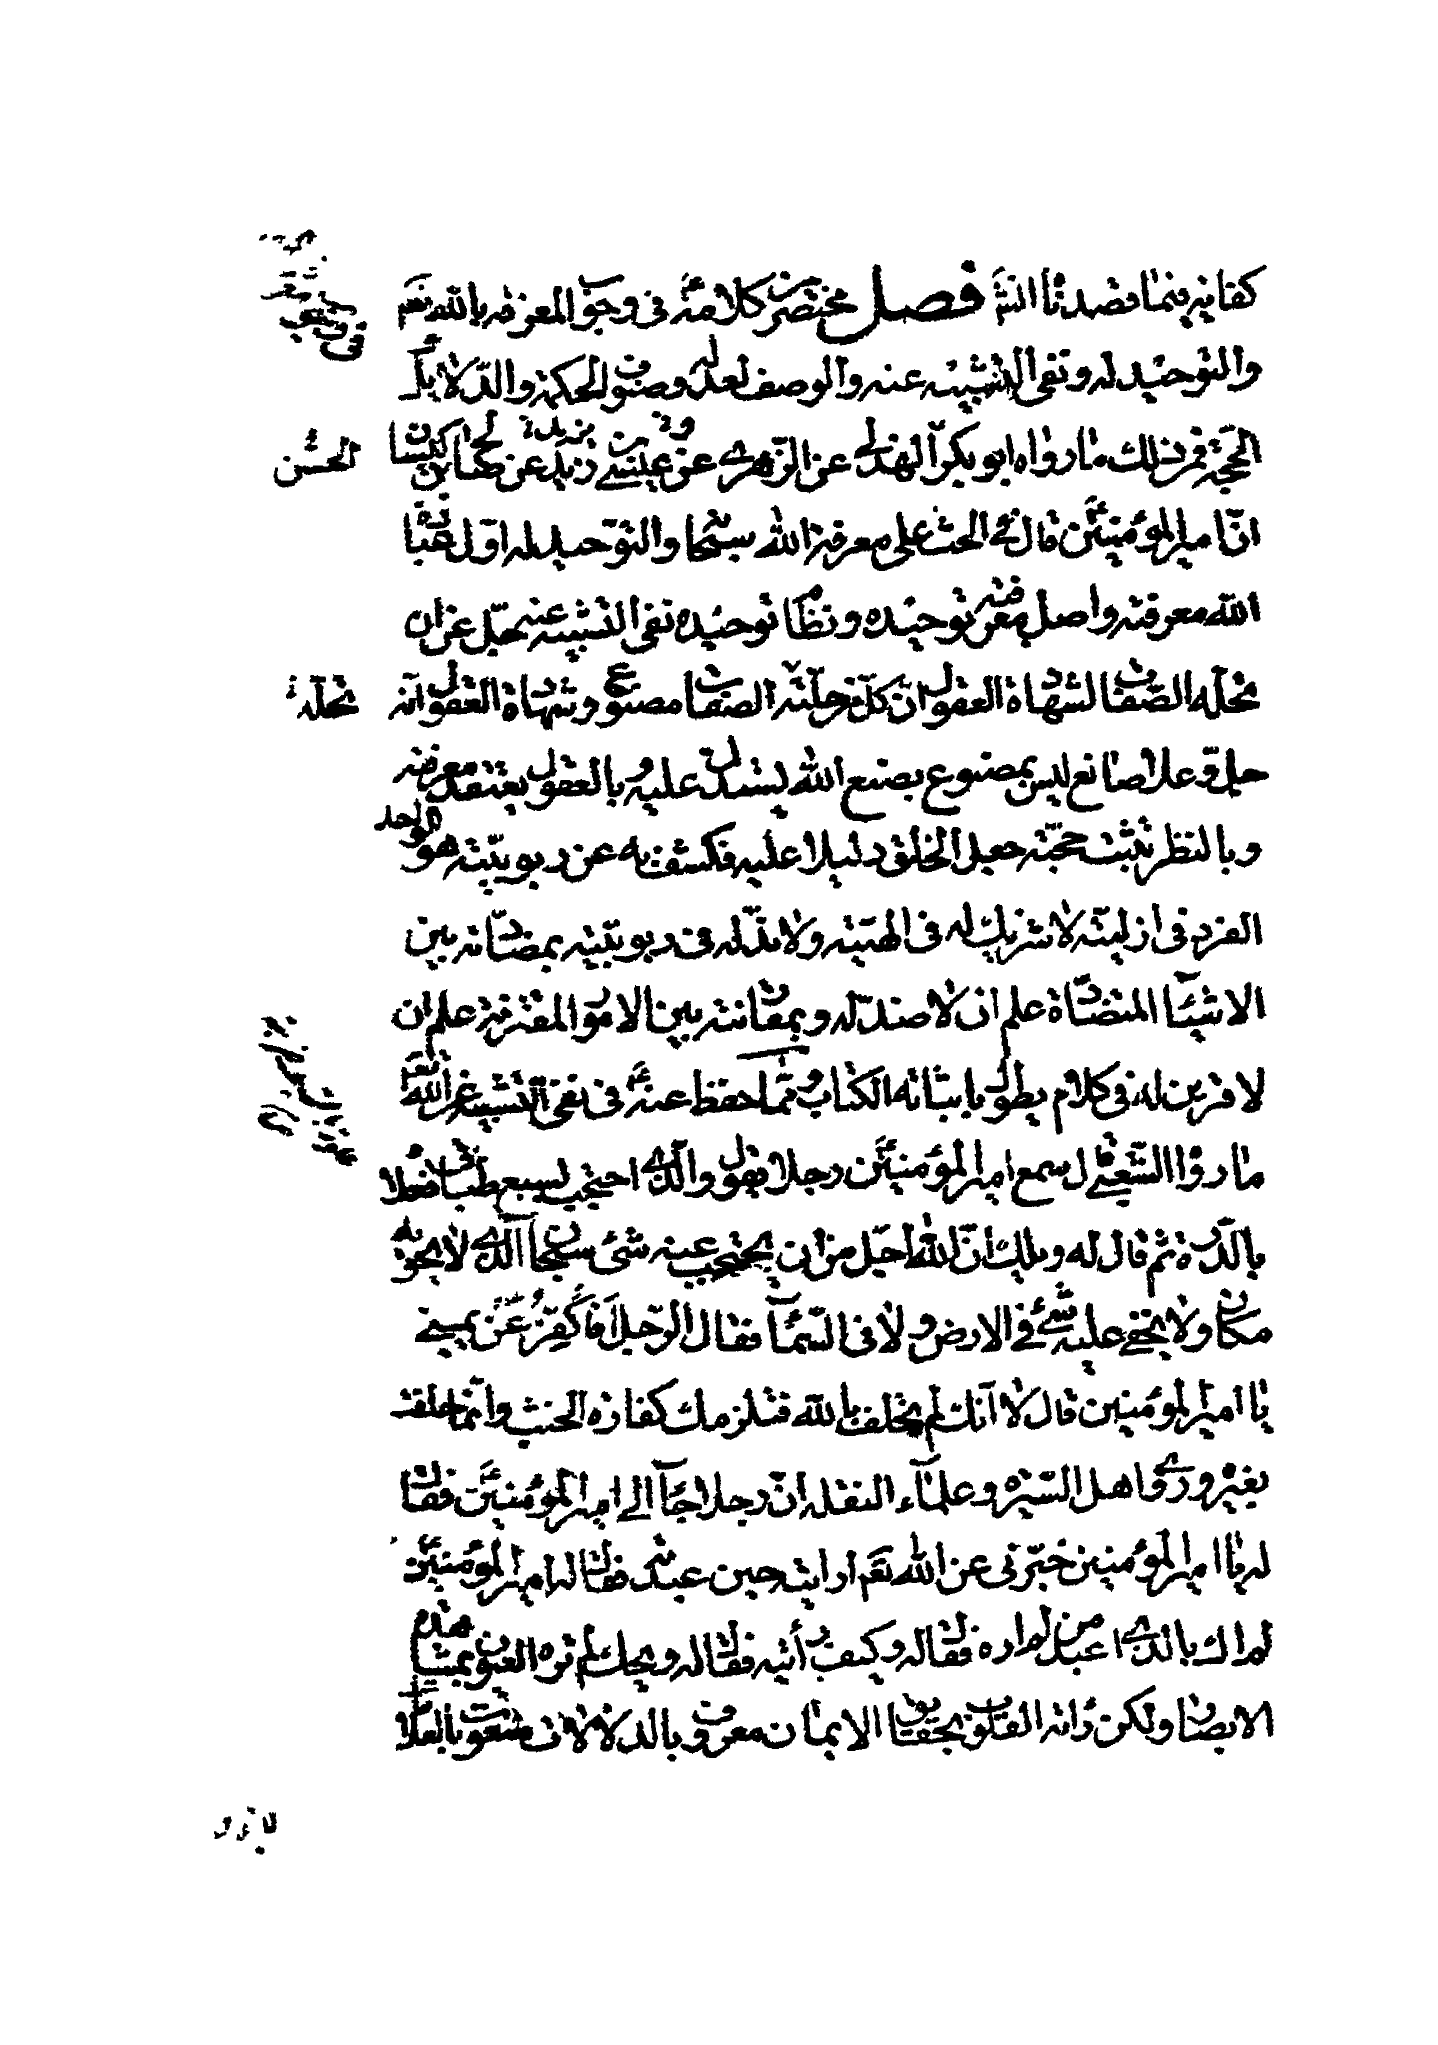 كفاية فيما قصدناه انش فصل مختصر من كلامه ع في وجوب المعرفة بالله تعم
والتوحيد له ونفى التشبيه عنه والوصف لعدله وصنوف الحكمة والدلايل
الحجة فمن ذلك ما رواه ابو بكر الهذلي عن الزهري وعن عيسى بن زيد عن صالح بن كيسان
انّ امير المؤمنين ع قال في الحث على معرفة الله سبحانه والتوحيد له اول عبادة
الله معرفته واصل معرفته توحيده ونظام توحيده نفى التشبيه عنه جل عن ان
تحله الصفات لشهادة العقول ان كل من حلته الصفات مصنوع وشهادة العقول انه
جل وعلا صانع ليس بمصنوع بصنع الله يستدل عليه وبالعقول يعتقد معرفته
وبالنظر تثبت حجته جعل الخلق دليلا عليه فكشف به عن ربوبيته هو الواحد
الفرد في ازليته لا شريك له في الهيته ولا ند له في ربوبيته بمضادته بين
الاشياء المتضادة علم ان لا ضد له وبمقارنته بين الامور المقترنة علم ان
لا قرين له في كلام يطول باثباته الكتاب ومما حفظ عنه ع في نفى التشبيه عن الله تعم
ما رواه الشعبي قال سمع امير المؤمنين ع رجلا يقول والذي احتجب بسبع طباق فعلاه
بالدرة ثم قال له ويلك ان الله اجل من ان يحتجب عنه شئ سبحان الذي لا يحويه
مكان ولا يخفى عليه شئ في الارض ولا في السماء فقال الرجل أفأكفر عن يميني
يا امير المؤمنين قال لا انك لم تحلف بالله فتلزمك كفارة الحنث وانما حلفت
بغيره وروى اهل السيرة وعلماء النقلة ان رجلا جاء الى امير المؤمنين ع فقال
له يا امير المؤمنين خبرني عن الله تعم ارايته حين عبدته فقال له امير المؤمنين ع
لم اك بالذي اعبد من لم اره فقال له وكيف رأيته فقال له ويحك لم تره العيون بمشاهدة
الابصار ولكن رأته القلوب بحقايق الايمان معروف بالدلالات منعوت بالعلامات
الحسن
تحله